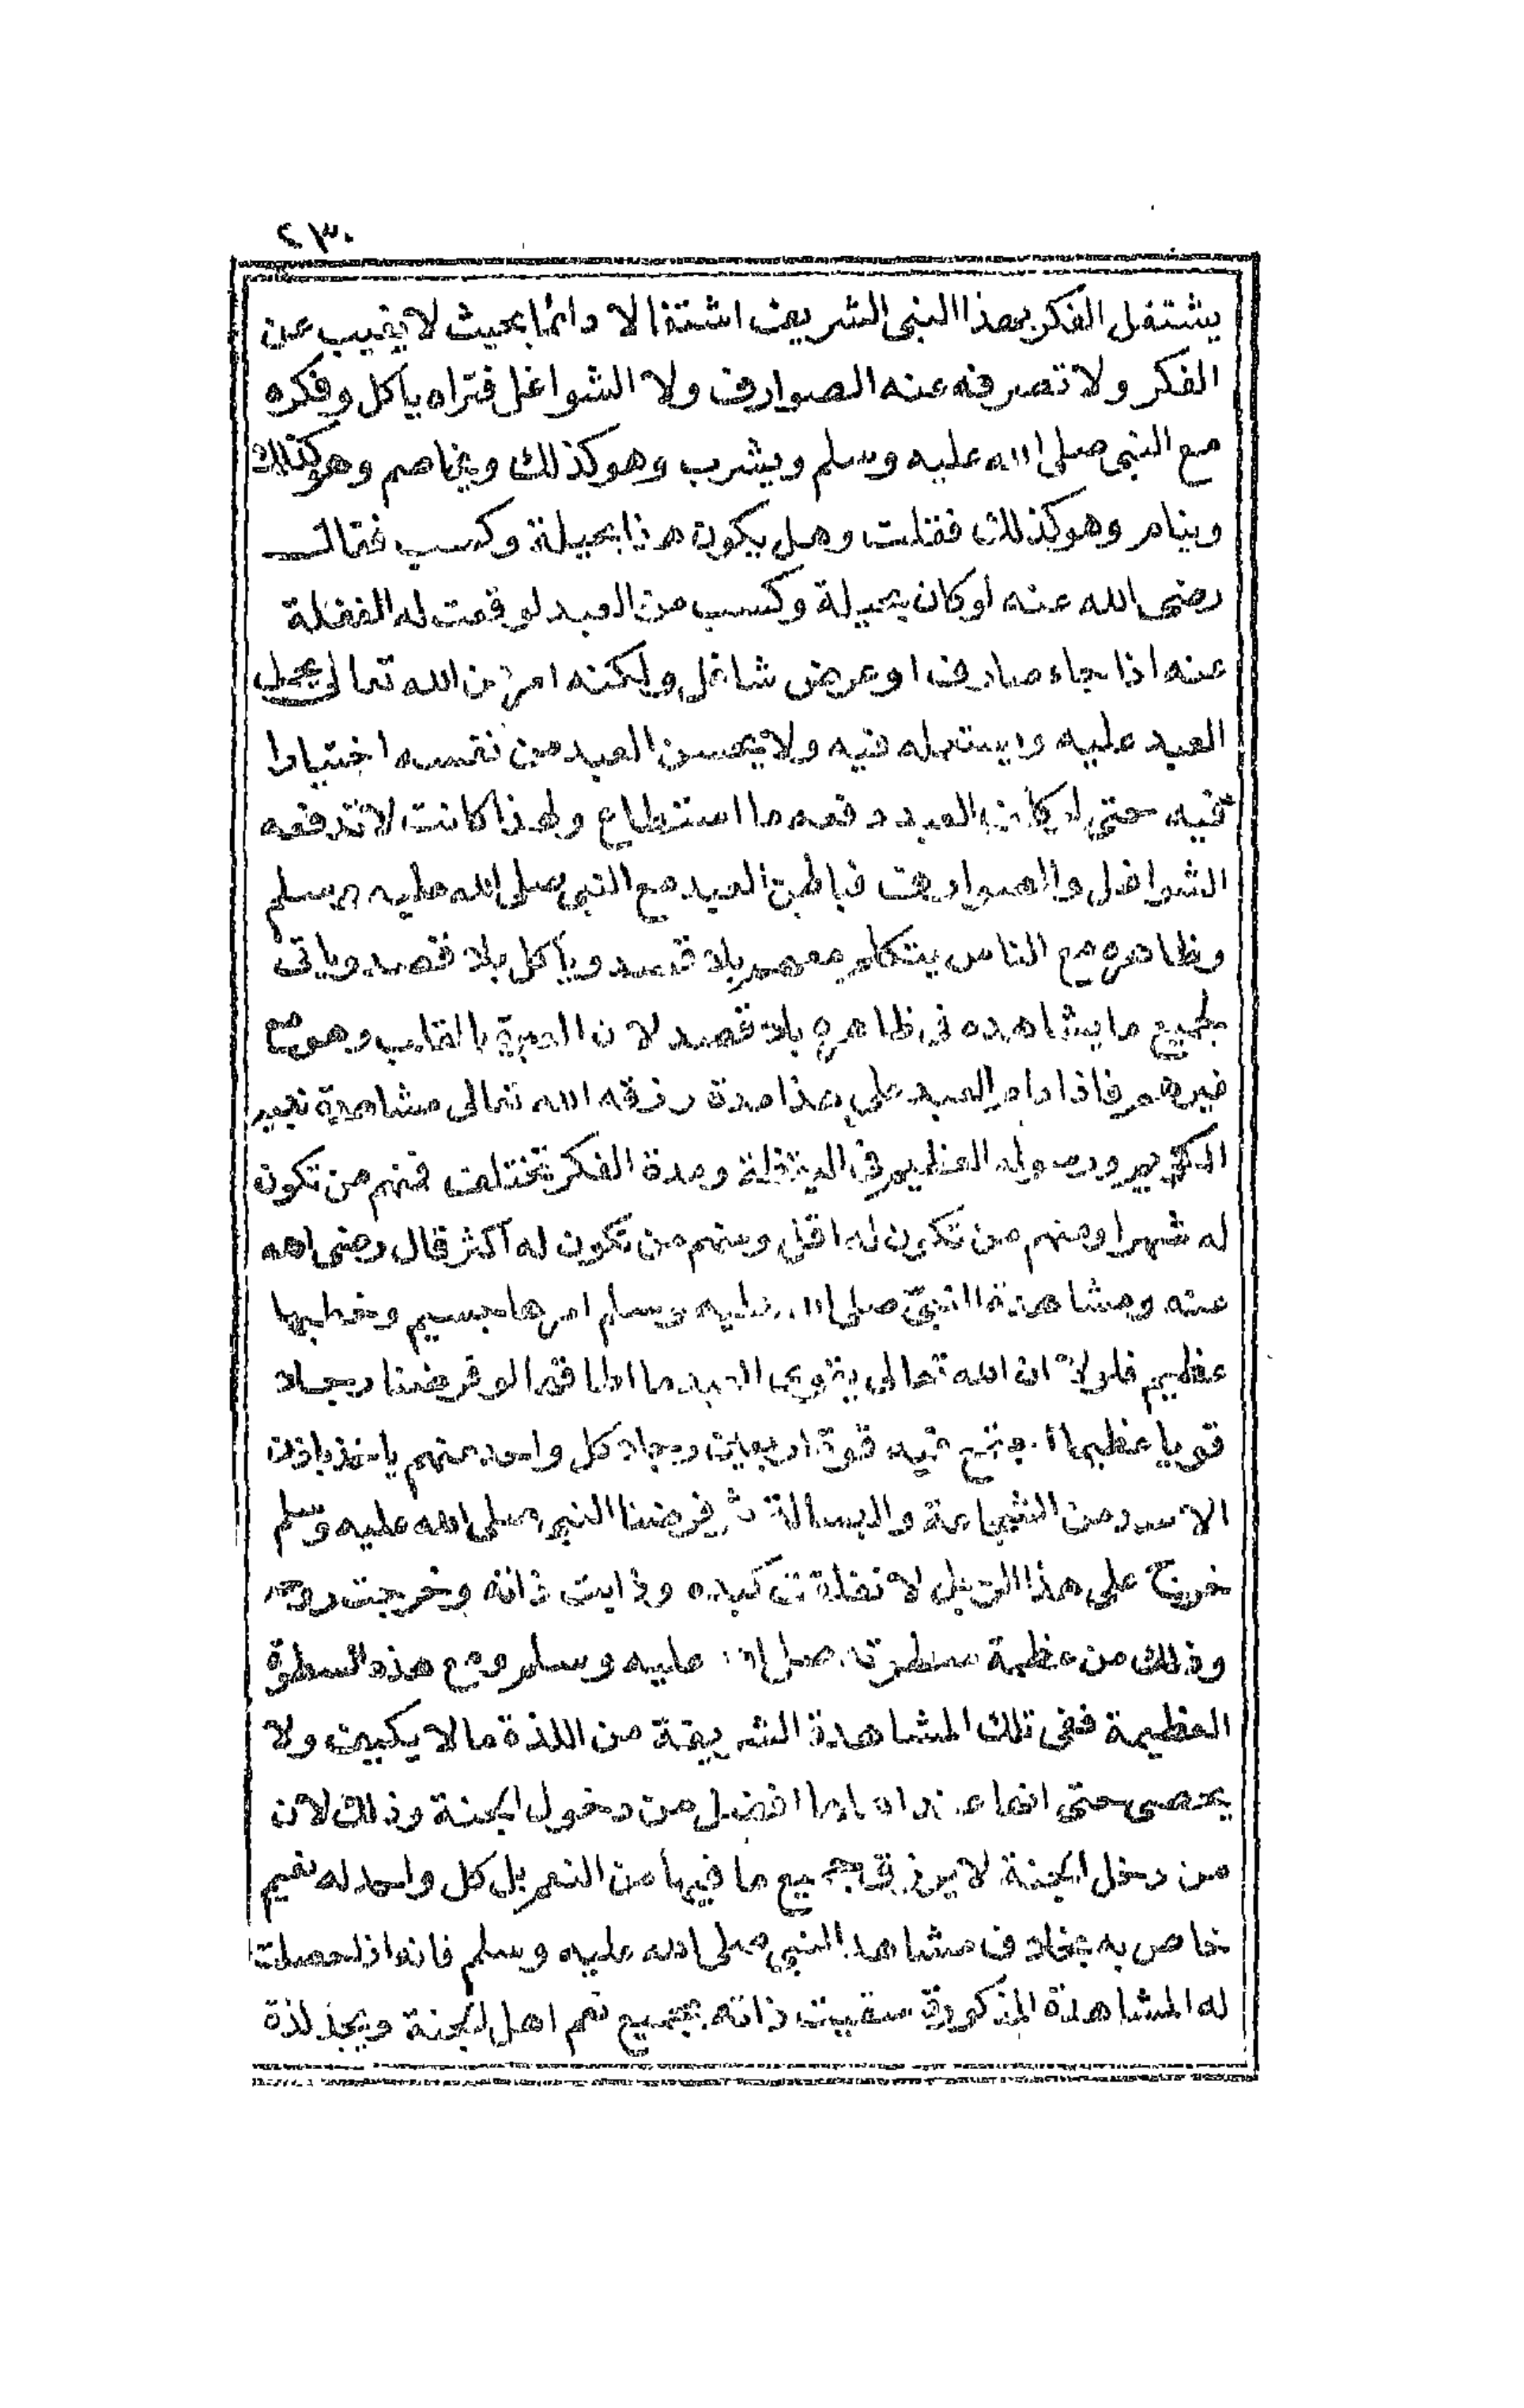 ٢٣٠
يشتغل الفكر بهذا النبى الشريف اشتغالا دائما بحيث لا يغيب عن
الفكر ولا تصرفه عنه الصوارف ولا الشواغل فتراه يأكل وفكره
مع النبى صلى الله عليه وسلم ويشرب وهو كذلك ويخاصم وهو كذلك
وينام وهو كذلك فقلت وهل يكون هذا بحيلة وكسب فقال
رضى الله عنه لو كان بحيلة وكسب من العبد لوقعت له الغفلة
عنه اذا جاء صارف او عرض شاغل ولكنه امر من الله تعالى يحمل
العبد عليه ويستعمله فيه ولا يحس العبد من نفسه اختيارا
فيه حتى لو كلف العبد دفعه ما استطاع ولهذا كانت لا تدفعه
الشواغل والصوارف فباطن العبد مع النبى صلى الله عليه وسلم
وظاهره مع الناس يتكلم معهم بلا قصد ويأكل بلا قصد وياتى
لجميع ما يشاهده فى ظاهره بلا قصد لان العبرة بالقلب وهو مع
غيرهم فاذا دام العبد على هذا مدة رزقه الله تعالى مشاهدة نبيه
الكريم ورسوله العظيم فى اليقظة ومدة الفكر تختلف فمنهم من تكون
له شهرا ومنهم من تكون له اقل ومنهم من تكون له اكثر قال رضى الله
عنه ومشاهدة النبى صلى الله عليه وسلم امرها جسيم وخطبها
عظيم فلولا ان الله تعالى يقوى العبد ما اطاقها لو فرضنا رجلا
قويا عظيما اجتمع فيه قوة اربعين رجلا كل واحد منهم ياخذ باذن
الاسد من الشجاعة والبسالة ثم فرضنا النبى صلى الله عليه وسلم
خرج على هذا الرجل لانفلقت كبده وذابت ذاته وخرجت روحه
وذلك من عظمة سطوته صلى الله عليه وسلم ومع هذه السطوة
العظيمة ففى تلك المشاهدة الشريفة من اللذة ما لا يكيف ولا
يحصى حتى انها عند اهلها افضل من دخول الجنة وذلك لان
من دخل الجنة لا يرزق جميع ما فيها من النعم بل كل واحد له نعيم
خاص به بخلاف مشاهد النبى صلى الله عليه وسلم فانه اذا حصلت
له المشاهدة المذكورة سقيت ذاته بجميع نعم اهل الجنة ويجد لذة